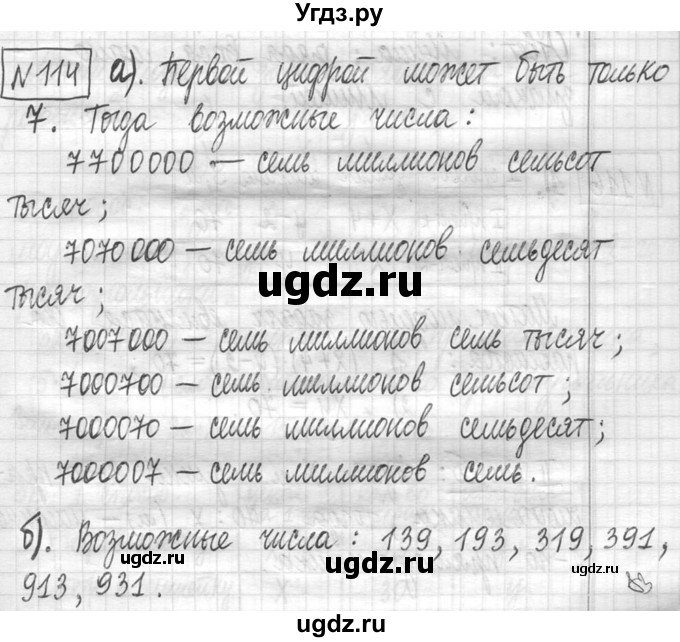 Угдз.ру
№114 а). Первой цифрой может быть только
7. Тогда возможные числа:
7700000 — семь миллионов семьсот
тысяч;
7070000 — семь миллионов семьдесят
тысяч;
ugdz.ru
7007000 — семь миллионов семь тысяч;
ugdz.ru
7000700 — семь миллионов семьсот;
7000070 — семь миллионов семьдесят;
ugdz.ru
7000007 — семь миллионов семь.
б). Возможные числа: 139, 193, 319, 391,
ugdz.ru
ugdz.ru
913, 931.
ugdz.ru